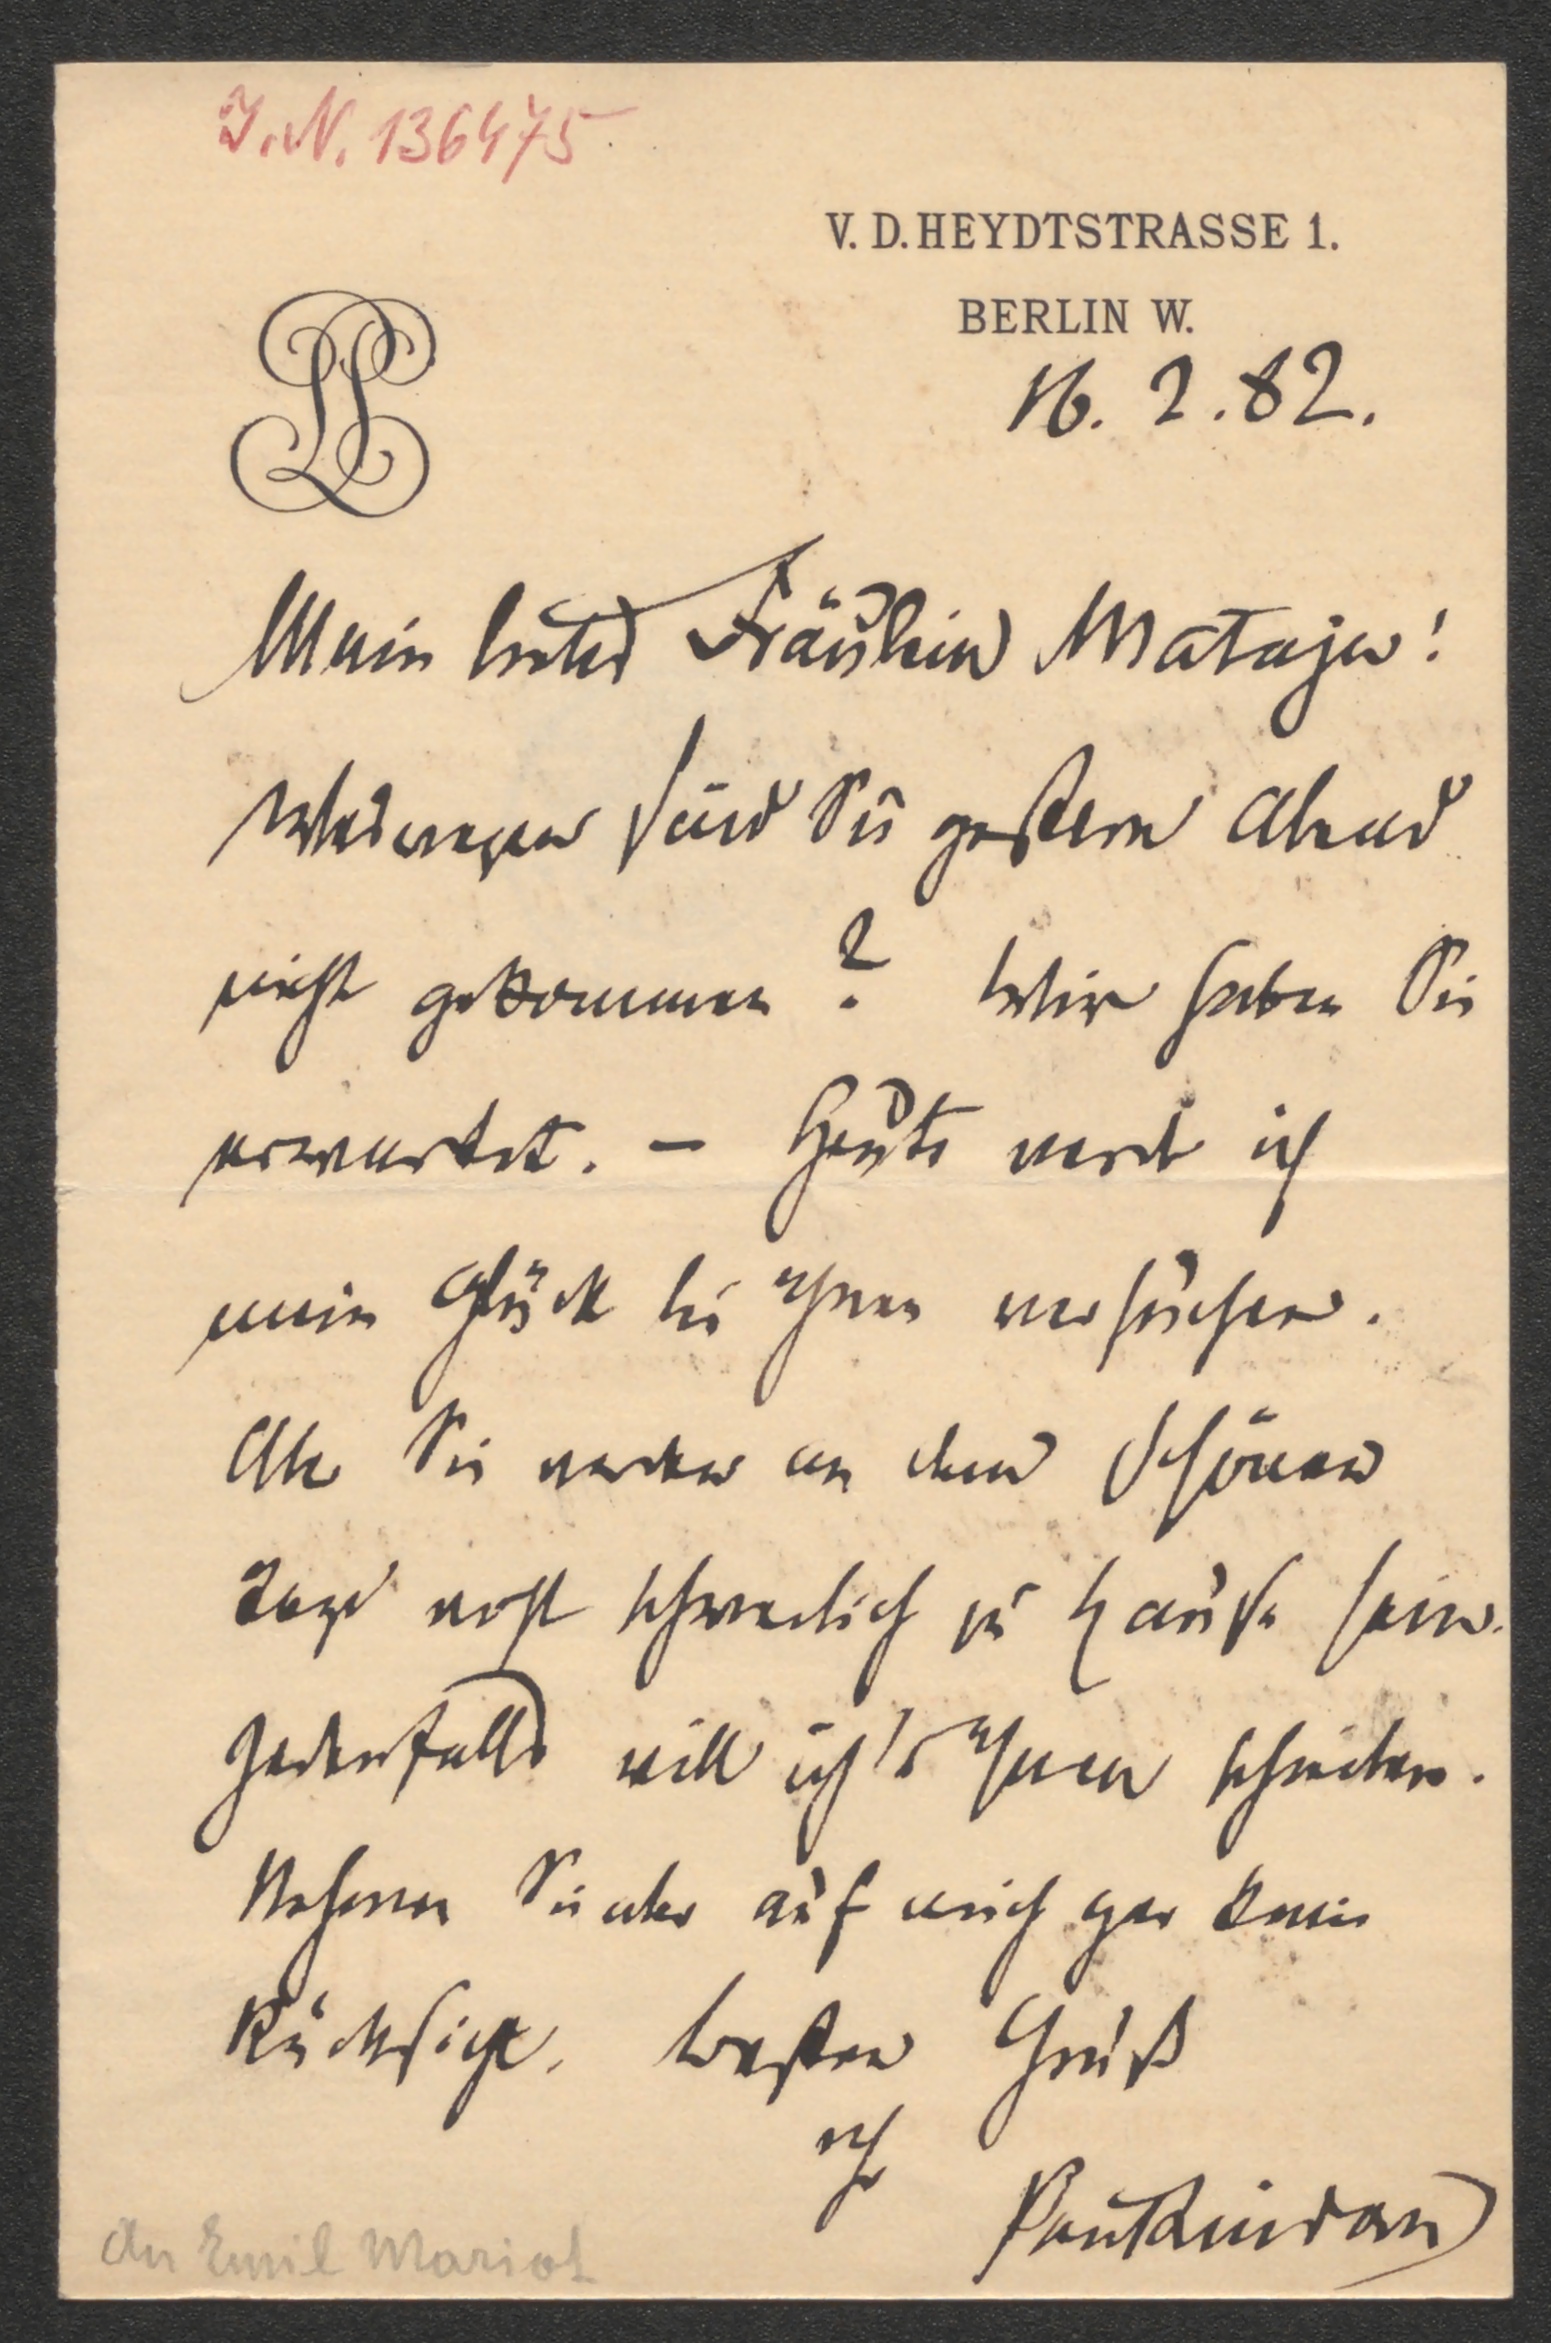 J. N. 136475
V. D. HEYDTSTRASSE 1.
BERLIN W.
16. 2. 82.
PL
Mein liebes Fräulein Mataja!
Weswegen sind Sie gestern Abend
nicht gekommen? Wir haben Sie
erwartet. – Heute werde ich
mein Glück bei Ihnen versuchen.
Aber Sie werden an dem schönen
Tage wohl schwerlich zu Hause sein.
Jedenfalls will ich's Ihnen schreiben.
Nehmen Sie aber auf mich gar keine
Rücksicht. Besten Gruß
Ihr
Paul Lindau
An Emil Mariot